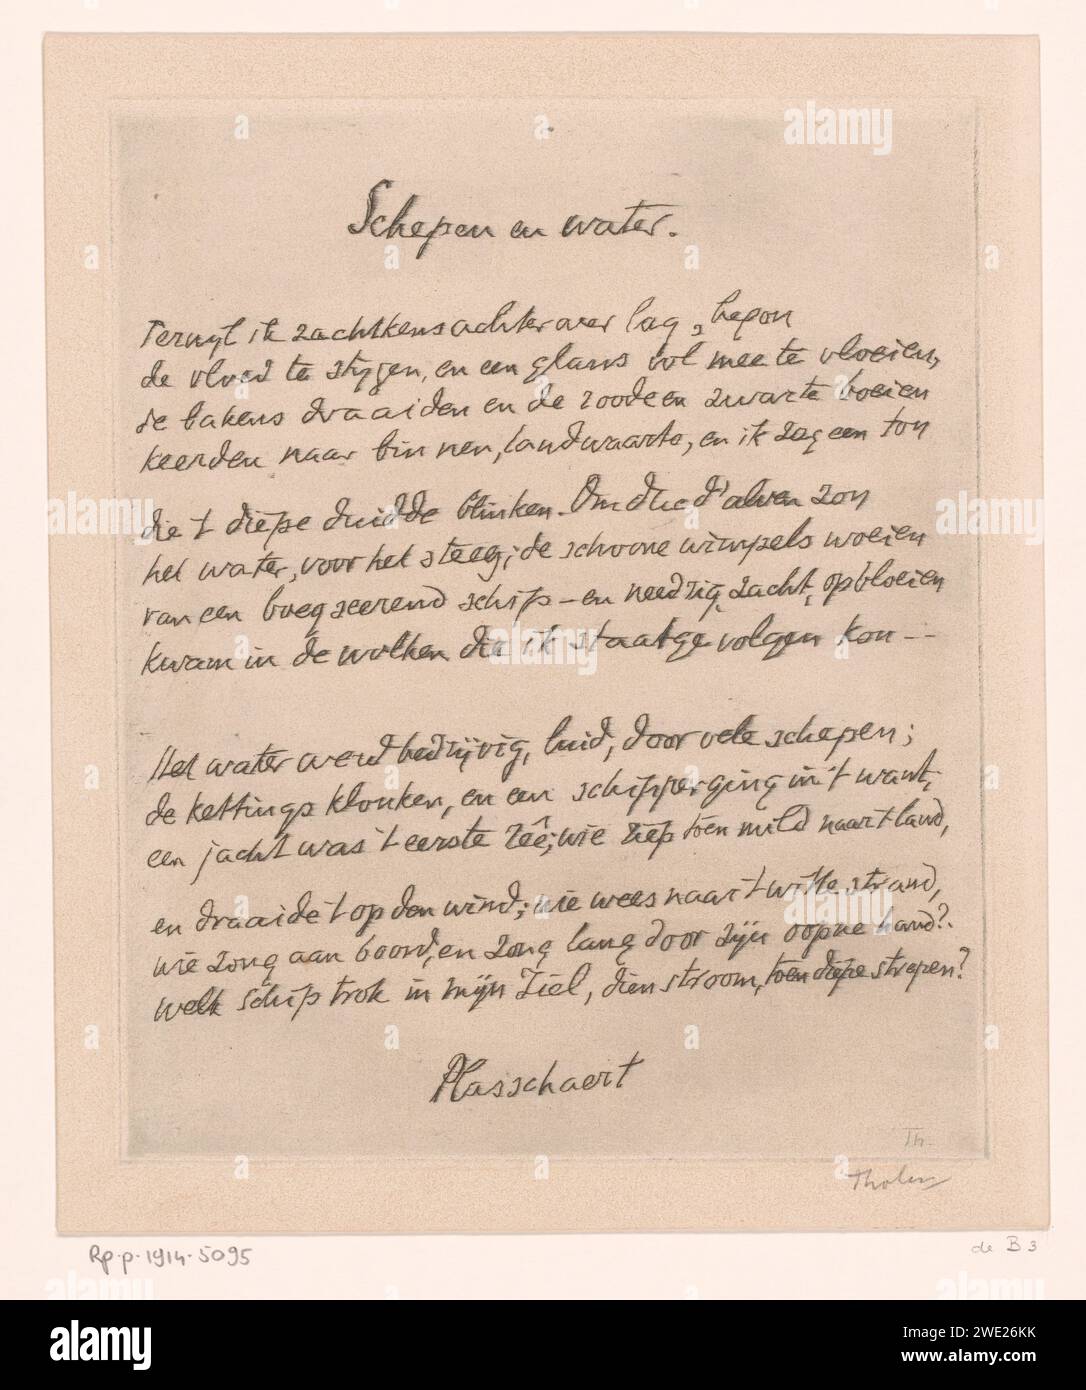 Schepen en water.
Terwyl ik zachtkens achterover lag, begon
de vloed te stygen, en een glans vol mee te vloeien,
de bakens draaiden en de roode en zwarte boeien
keerden naar binnen, landwaarts, en ik zag een ton
die 't diepe duidde blinken. Omdued' alven zon
het water, voor het steeg; de schoone wimpels woeien
van een boegseerend schip – en needrig, zacht, opbloeien
kwam in de wolken die ik staatge volgen kon --
Het water werd bedrijvig, luid, door vele schepen;
de kettings klonken, en een schipper ging in 't want;
een jacht was 't eerste reê; wie riep toen mild naar 't land,
en draaide 't op den wind; wie wees naar 't witte strand,
wie zong aan boord, en zong lang door zijn oopne hand?
welk schip trok in mijn ziel, dien stroom, toen diepe strepen?
Plasschaert
Th.
Tholen
Rp.p.1914.5095
de B 3
alamy
Image ID: 2WE26KK
www.alamy.com